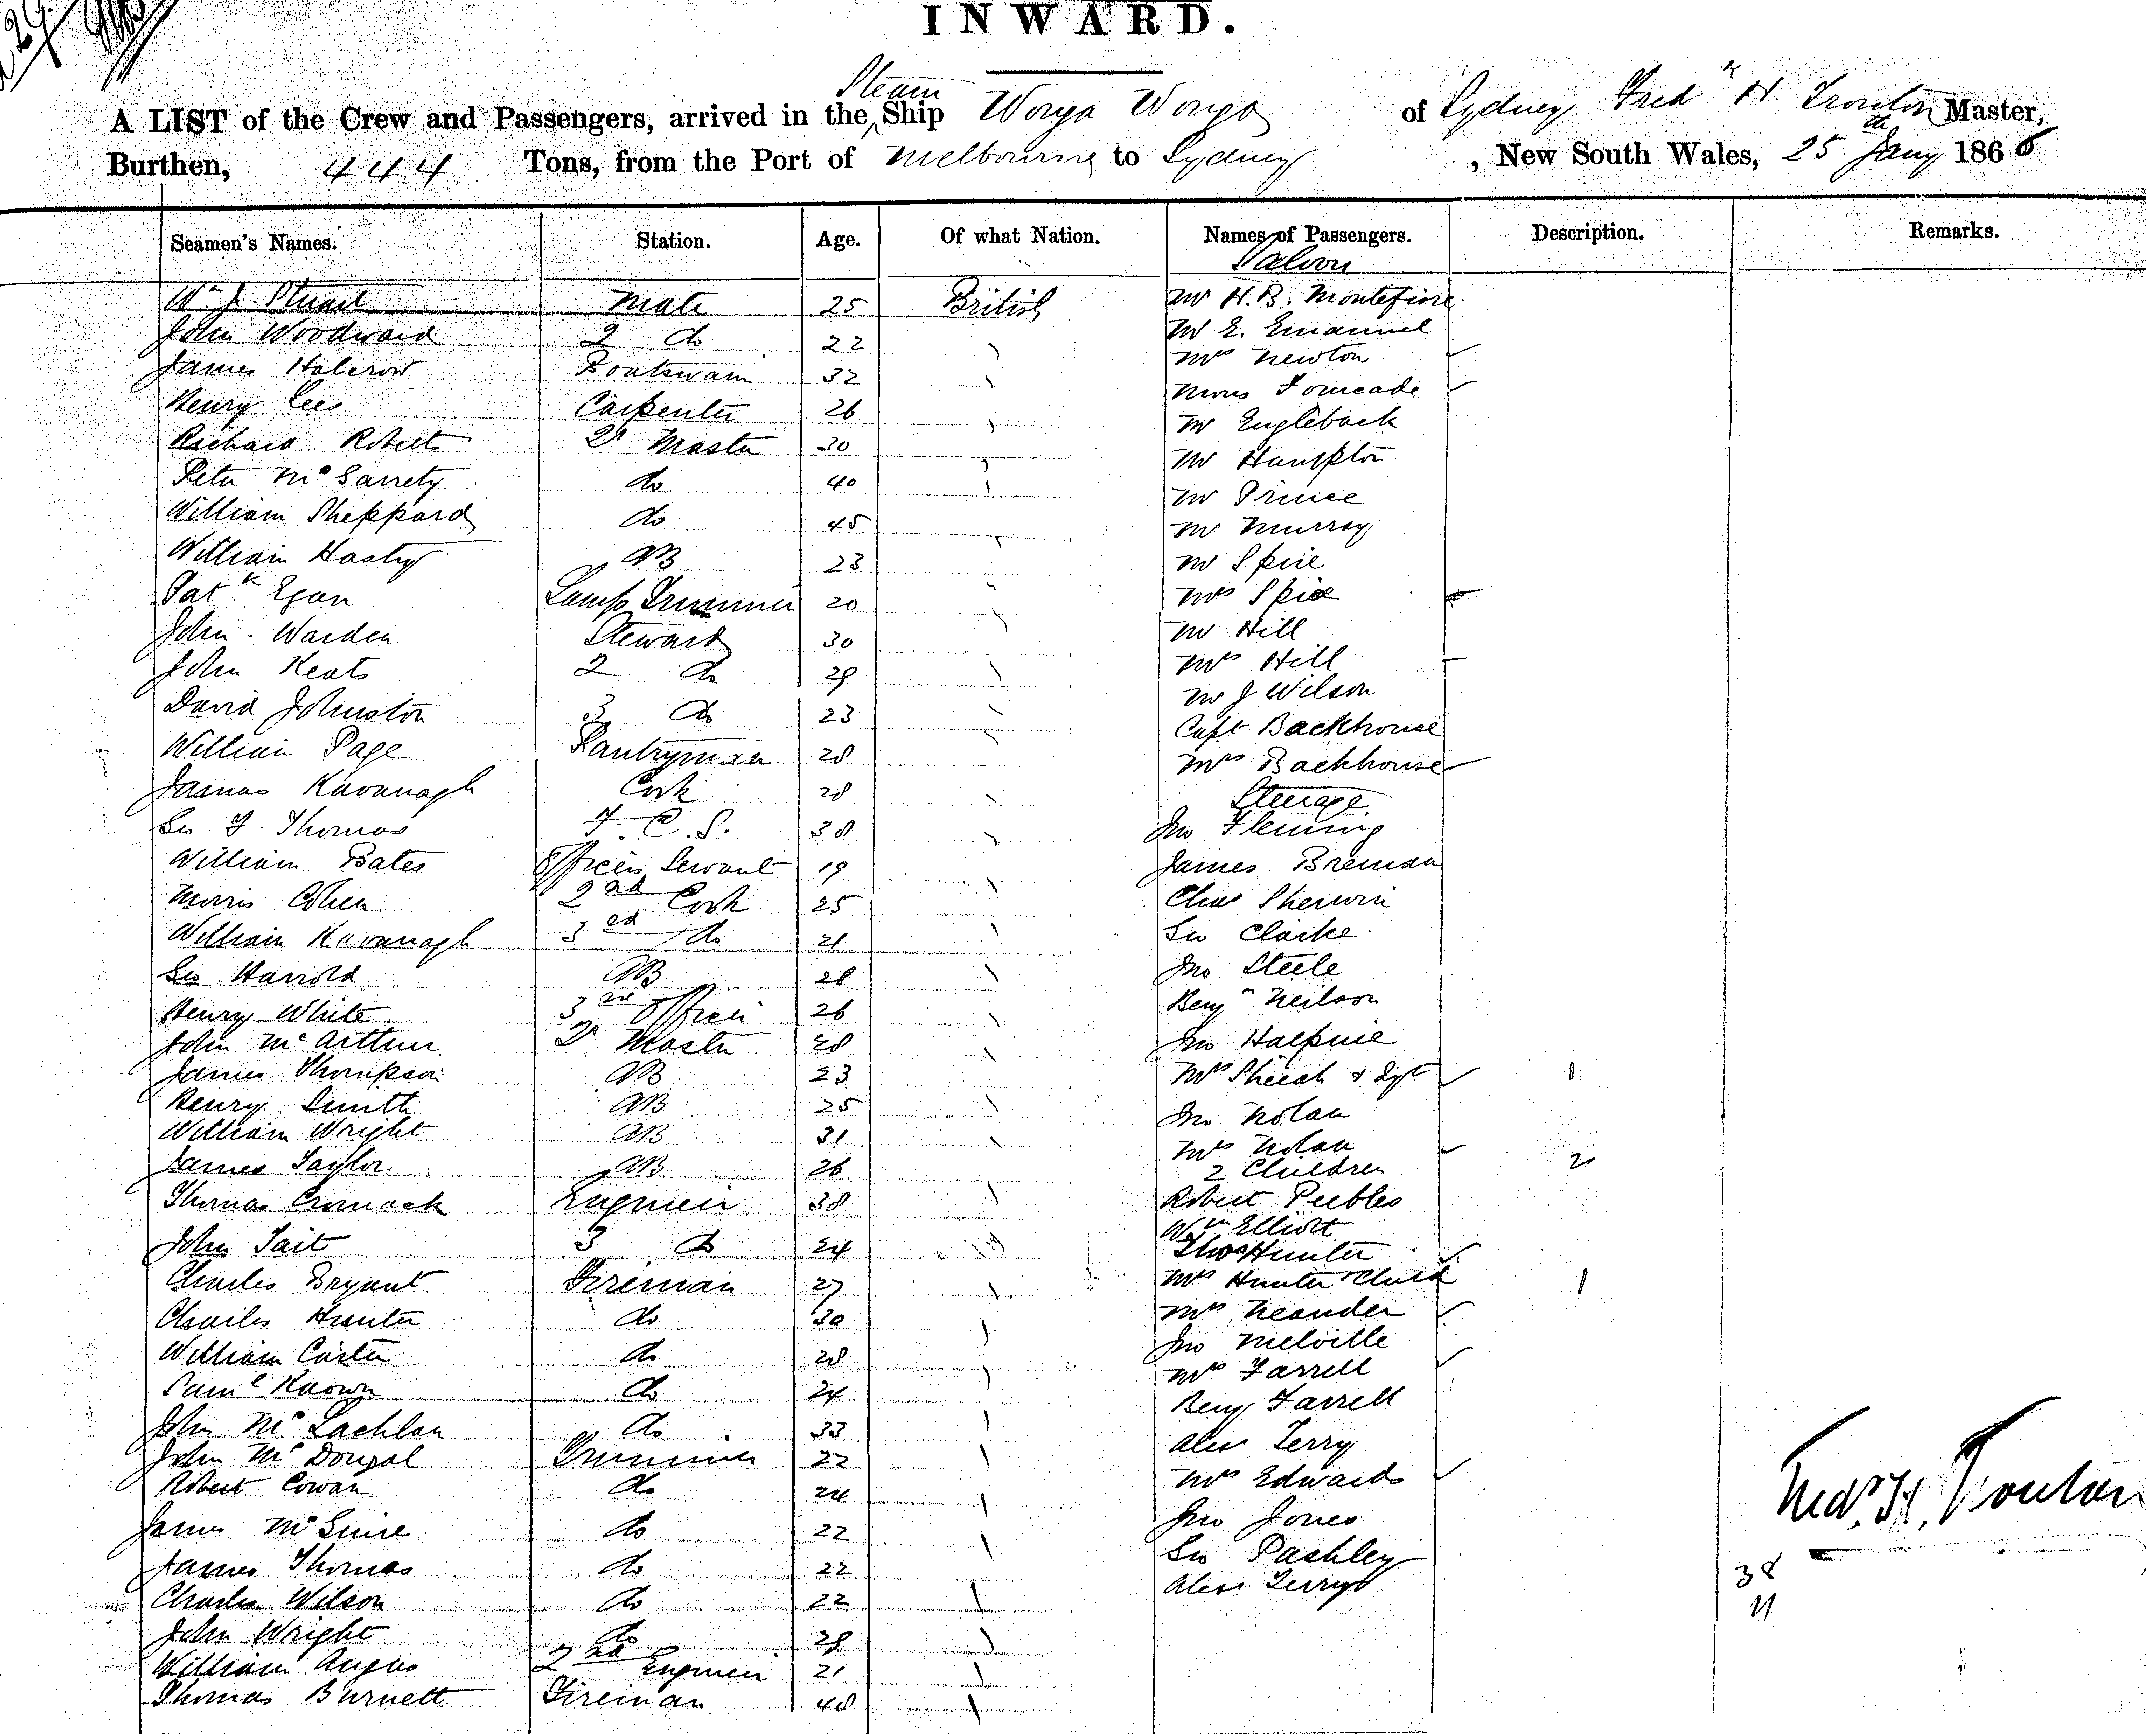 INWARD.
A LIST of the Crew and Passengers, arrived in the Steam Ship Wonga Wonga of Sydney Fredk H Trouton Master,
Burthen, 444 Tons, from the Port of Melbourne to Sydney, New South Wales, 25th Jany 1866
Seamen's Names. Station. Age. Of what Nation. Names of Passengers. Description. Remarks.
Saloon
Wm J Stuart Mate 25 British Mr H. B. Montefiore
John Woodward 2 do 22 Mr E. Emanuel
James Halcrow Boatswain 32 Mrs Newton
Henry Lees Carpenter 26 Mons Fourcade
Richard Roberts Qr Master 30 Mr Engleback
Peter McGarrety do 40 Mr Hampton
William Sheppard do 45 Mr Prince
William Hasty AB 23 Mr Murray
Patk Egan Lamp Trimmer 20 Mr Spire
John Warden Steward 30 Mrs Spire
John Keats 2 do 29 Mr Hill
David Johnston 3 do 23 Mrs Hill
William Page Pantryman 28 Mr J Wilson
James Kavanagh Cook 28 Capt Backhouse
Geo F. Thomas F. C. S. 38 Mrs Backhouse
William Bates Officers Servant 19 Steerage
Morris Cohen 2nd Cook 25 Jno Fleming
William Kavanagh 3rd do 21 James Brennan
Geo Harrold AB 28 Chas Sherwin
Henry White 3rd Officer 26 Geo Clarke
John McArthur Qr Master 28 Jno Steele
James Thompson AB 23 Benjn Neilson
Henry Smith AB 25 Jno Halpine
William Wright AB 31 Mrs Sheeah & Dgt 1
James Taylor AB 26 Jno Nolan
Thomas Cromack Engineer 38 Mrs Nolan
2 Children 2
John Tait 3 do 24 Robert Peebles
Charles Bryant Fireman 27 Wm Elliott
Charles Hunter do 30 Thos Hunter
William Carter do 28 Mrs Hunter & Child 1
Saml Known do 24 Mrs Neander
John McLachlan do 33 Jno Melville
John McDougal Trimmer 22 Mrs Farrell
Robert Cowan do 24 Benj Farrell
James McGuire do 22 Alex Terry
James Thomas do 22 Mrs Edwards
Charles Wilson do 22 Jno Jones
John Wright do 29 Geo Pashley
William Angus 2nd Engineer 21 Alex Terry
Thomas Burnett Fireman 48
Fredk. H. Trouton
38
11